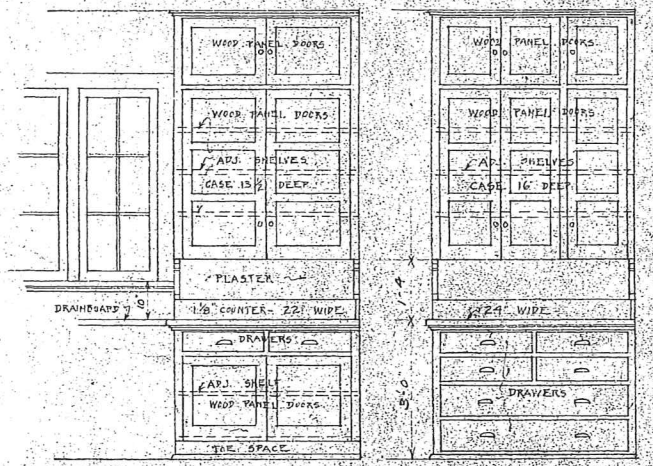 WOOD PANEL DOORS
WOOD PANEL DOORS
ADJ. SHELVES
CASE 13 1/2 DEEP
PLASTER
DRAINBOARD
10"
1 1/8" COUNTER - 22" WIDE
DRAWERS
ADJ. SHELF
WOOD PANEL DOORS
TOE SPACE
WOOD PANEL DOORS
WOOD PANEL DOORS
ADJ. SHELVES
CASE 16" DEEP
1'-4
24" WIDE
3'-0"
DRAWERS